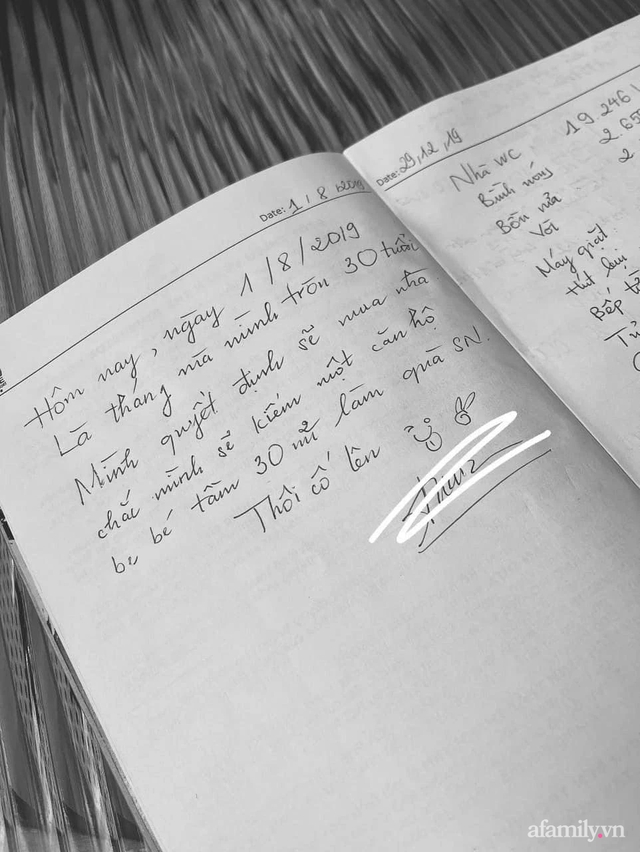 Date: 1 / 8 / 2019
Hôm nay, ngày 1/8/2019
Là tháng nữa mình tròn 30 tuổi
Mình quyết định sẽ mua nhà
chắc mình sẽ kiếm một căn hộ
be bé tầm 30 m² làm quà SN.
Thôi cố lên
Date: 29, 12, 19
Nhà WC 19.246
Bình nóng 2.65
Bồn rửa 2.
Vòi
Máy giặt
Hút
Bếp
afamily.vn